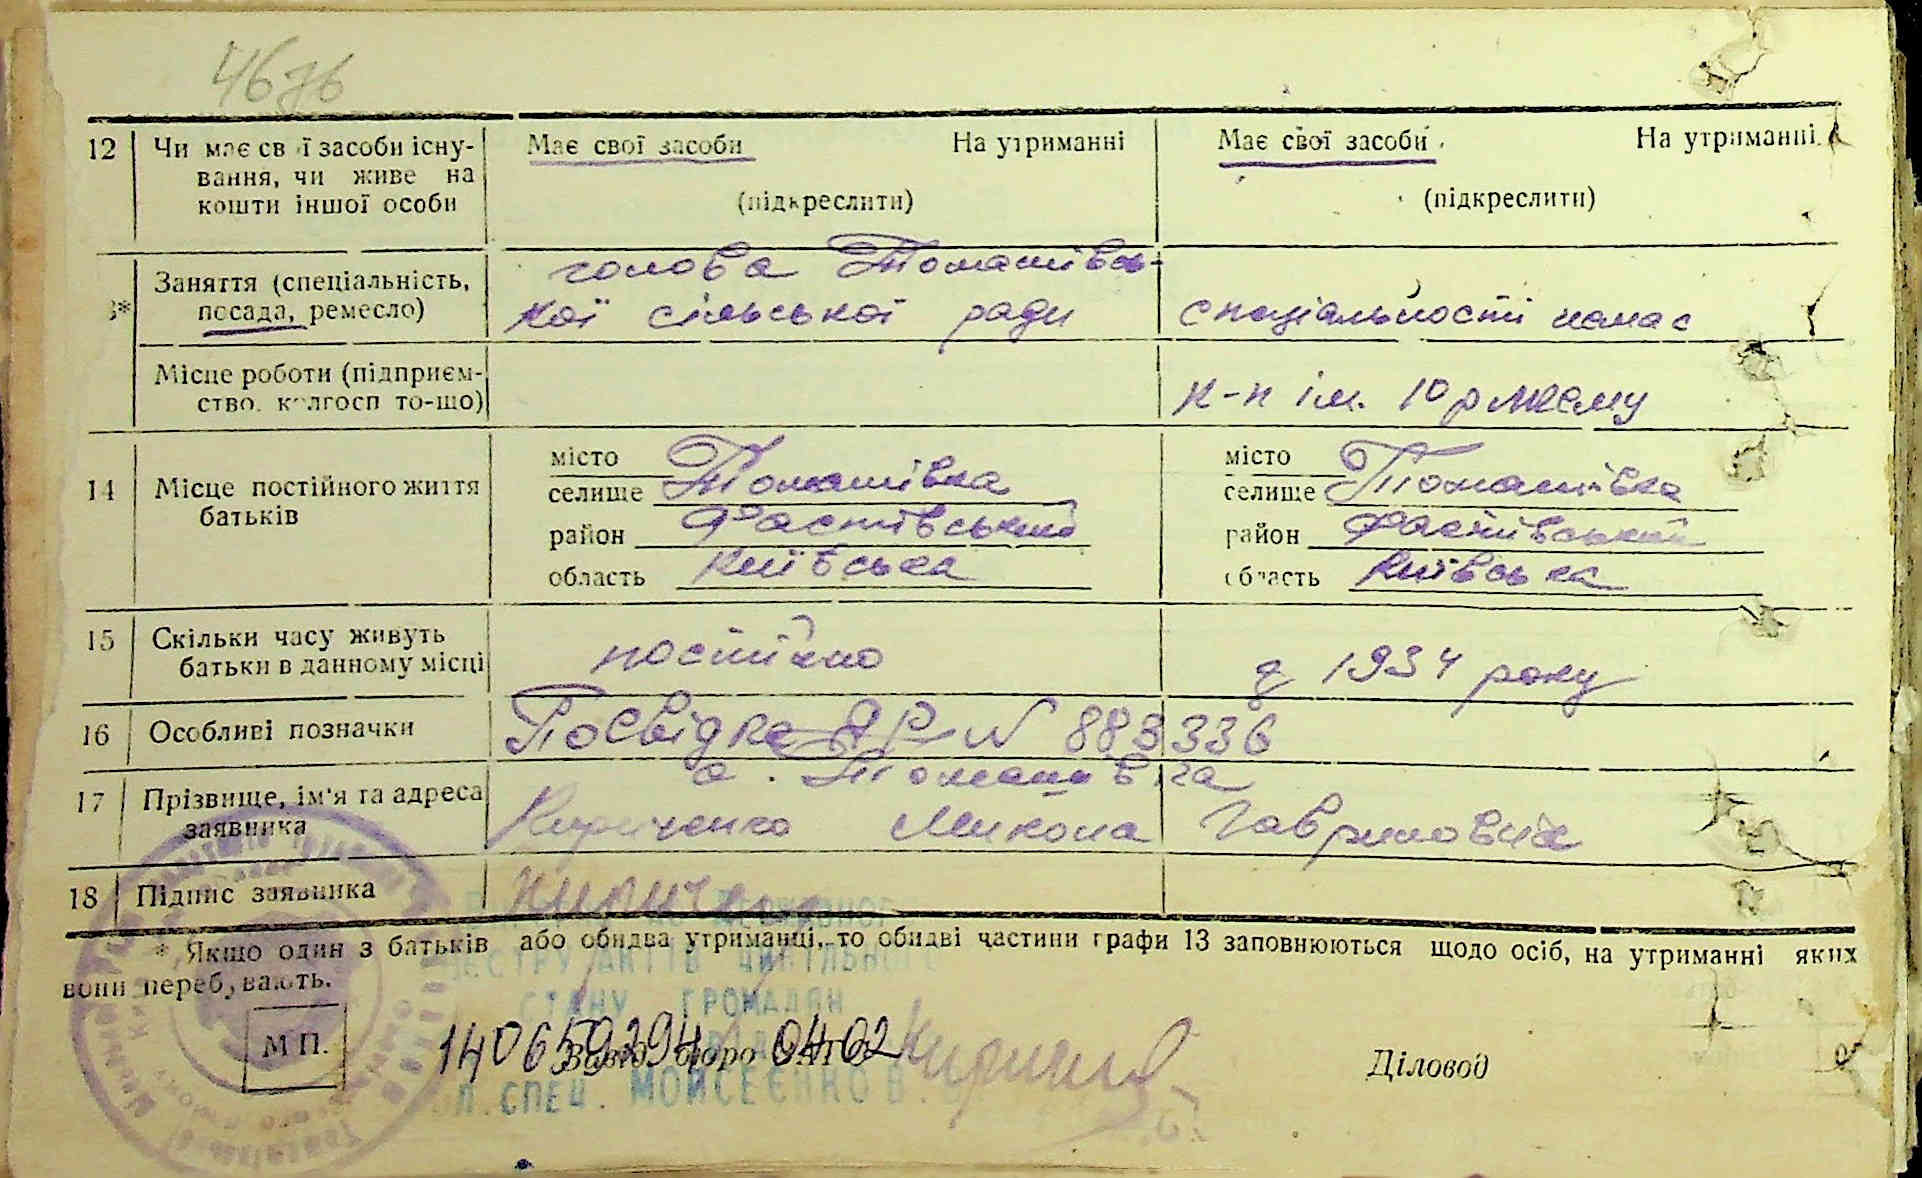 46зв
12 Чи має свої засоби існу- Має свої засоби На утриманні Має свої засоби На утриманні
вання, чи живе на
кошти іншої особи (підкреслити) (підкреслити)
голова Томашівсь-
3* Заняття (спеціальність,
посада, ремесло) кої сільської ради спеціальності немає
Місце роботи (підприєм-
ство, колгосп то-що) к-п ім. 10 річчему
місто місто
14 Місце постійного життя селище Томашівка селище Томашівка
батьків
район Фастівський район Фастівський
область Київська область Київська
15 Скільки часу живуть
батьки в данному місці постійно з 1934 року
16 Особливі позначки Посвідка ЯР № 883336
с. Томашівка
17 Прізвище, ім'я та адреса
заявника Кириченко Микола Гаврилович
18 Підпис заявника
* Якщо один з батьків або обидва утриманці, то обидві частини графи 13 заповнюються щодо осіб, на утриманні яких
вони перебувають.
ДЕРЖАВНОГО
РЕЄСТРУ АКТІВ ЦИВІЛЬНОГО
СТАНУ ГРОМАДЯН
М П. 140659294 0402
Завід. бюро ЗАГС Діловод
СПЕЦ. МОЙСЕЄНКО В.